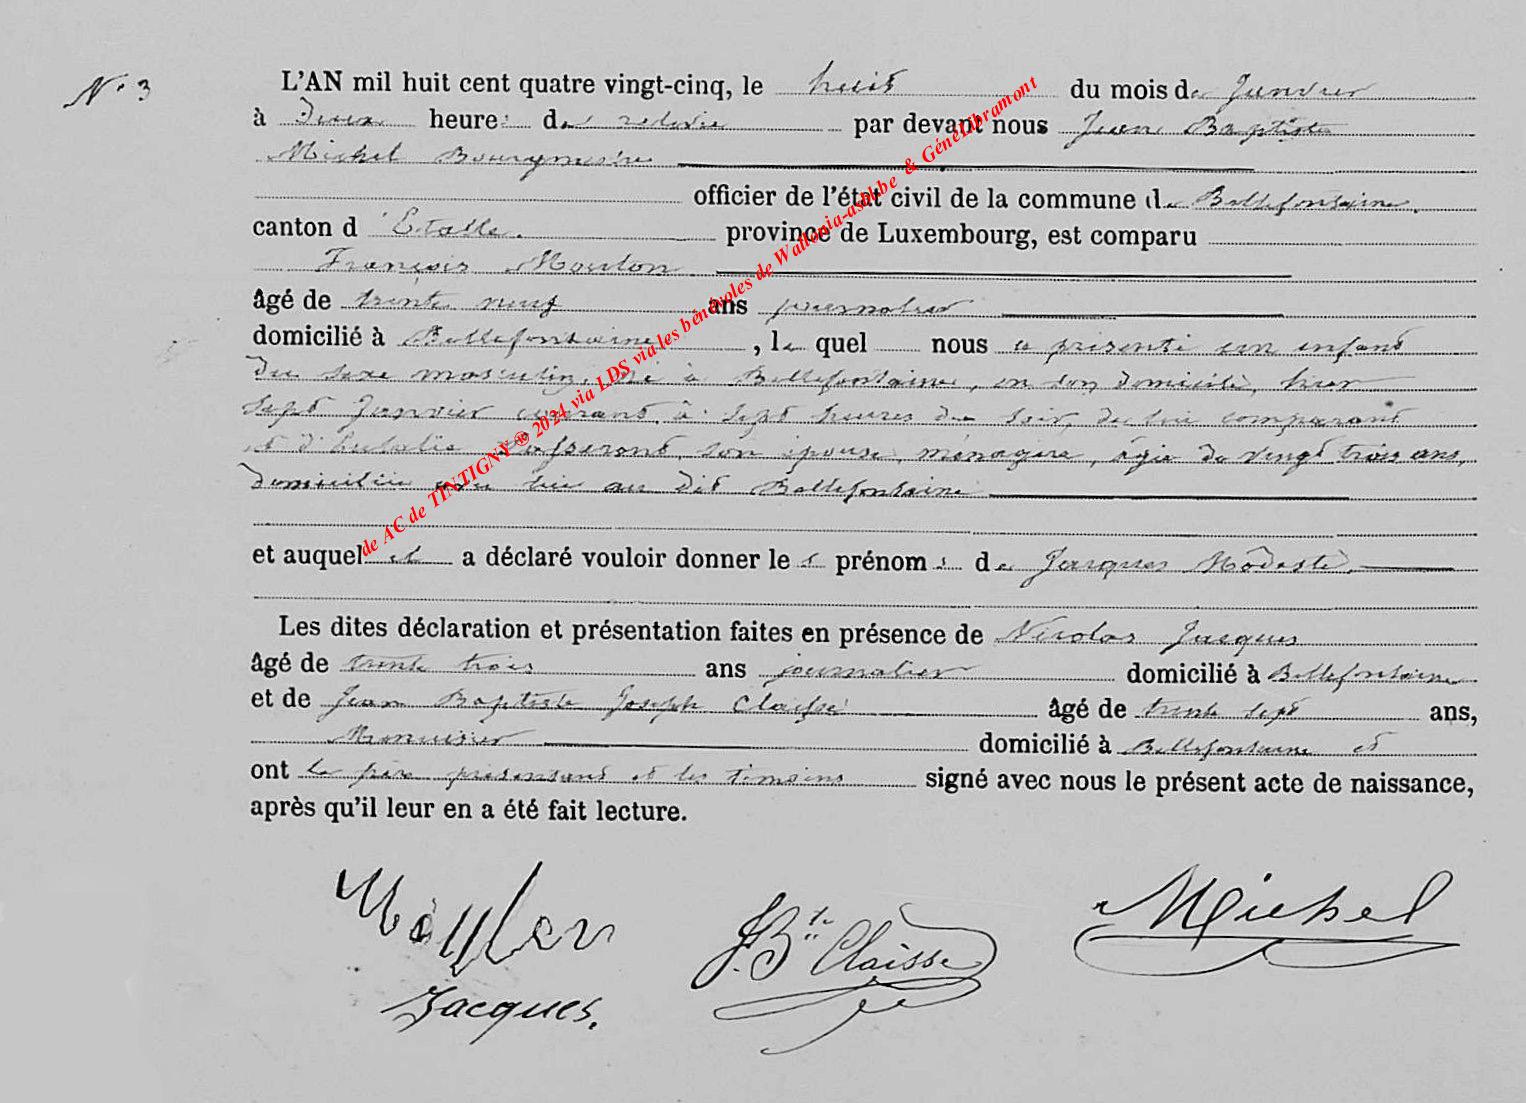 N° 3
L'AN mil huit cent quatre vingt-cinq, le huit du mois de Janvier
à Deux heures de relevée par devant nous Jean Baptiste
Michel Bourgmestre
officier de l'état civil de la commune de Bellefontaine,
canton d'Etalle. province de Luxembourg, est comparu
François Mouton
âgé de trente neuf ans journalier
domicilié à Bellefontaine, le quel nous a présenté un enfant
du sexe masculin, né à Bellefontaine, en son domicile, hier
sept Janvier courant, à sept heures du soir, de lui comparant
et d'Eulalie son épouse, ménagère, âgée de vingt trois ans,
domiciliée avec lui au dit Bellefontaine
et auquel il a déclaré vouloir donner les prénoms de Jacques Modeste.
Les dites déclaration et présentation faites en présence de Nicolas Jacques
âgé de trente trois ans journalier domicilié à Bellefontaine
et de Jean Baptiste Joseph Claisse âgé de trente sept ans,
Menuisier domicilié à Bellefontaine et
ont le père présentant et les témoins signé avec nous le présent acte de naissance,
après qu'il leur en a été fait lecture.
J. Bte Claisse
Michel
Jacques.
de AC de TINTIGNY © 2024 via LDS via les bénévoles de Wallonia-asbl.be & GénéLibramont